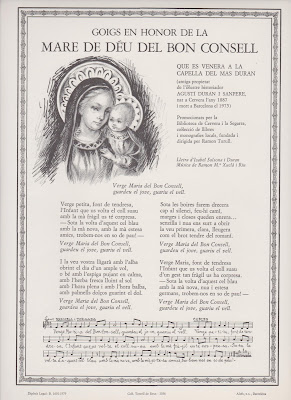 GOIGS EN HONOR DE LA
MARE DE DÉU DEL BON CONSELL
QUE ES VENERA A LA
CAPELLA DEL MAS DURAN
(antiga propietat
de l'il·lustre historiador
AGUSTÍ DURAN I SANPERE,
nat a Cervera l'any 1887
i mort a Barcelona el 1975)
Promocionats per la
Biblioteca de Cervera i la Segarra,
col·lecció de llibres
i monografies locals, fundada i
dirigida per Ramon Turull.
Lletra d'Isabel Salsona i Duran
Música de Ramon Mª. Xuclà i Bia
Verge Maria del Bon Consell,
guardeu el jove, guariu el vell.
Verge petita, font de tendresa,
l'Infant que us volta el coll suau
amb la mà feliç us té sorpresa.
—Sota la volta d'aquest cel blau
amb la mà nova, amb la mà estesa
antes, trobem-nos en so de pau! —
Verge Maria del Bon Consell,
guardeu el jove, guariu el vell.
I la veu vostra lligarà amb l'alba
obrint el dia d'un simple vol,
o bé amb l'espiga poqueta en calma,
amb l'herba fresca lluint al sol
amb l'hora plena i amb l'hora balba,
amb palmells dolços guariu el dol.
Verge Maria del Bon Consell,
guardeu el jove, guariu el vell.
Sota les hores farem drecera
cap al silenci, fexuc camí,
marges i closes queden enrera...
senzilla i nua sant ort a obrir
la veu primera, clara, lleugera
com el bes tendre del romaní.
Verge Maria del Bon Consell,
guardeu el jove, guariu el vell.
Verge Maria, font de tendresa,
l'Infant que us volta el coll suau
d'un gest tan fràgil us ha sorpresa.
—Sota la volta d'aquest cel blau
amb la mà nova, mà i estesa
germans, trobem-nos en so de pau!—
Verge Maria del Bon Consell,
guardeu el jove, guariu el vell.